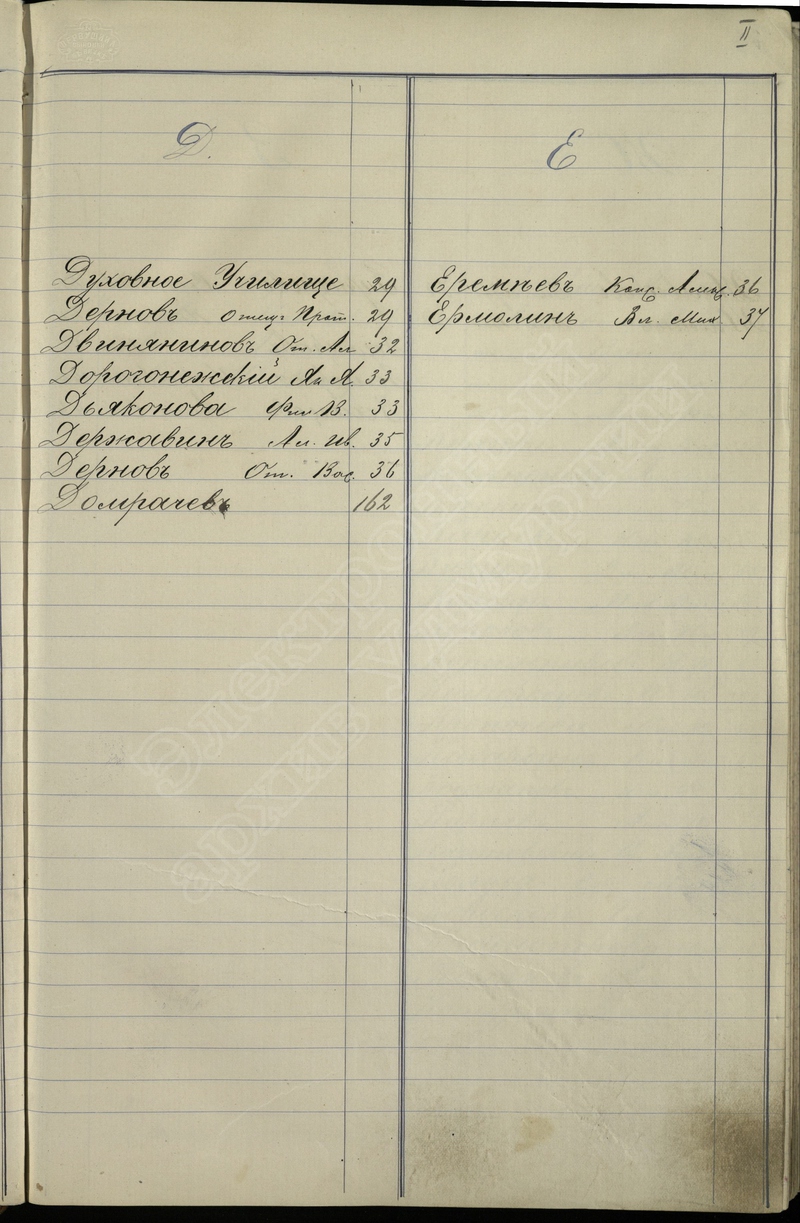 II
Д.
Духовное Училище 29
Дерновъ отец Прот. 29
Двиняниновъ От. Ал 32
Дорогонежскій Ал А. 33
Дьяконова Фил В. 33
Державинъ Ал. Ив. 35
Дерновъ От. Вас. 36
Домрачевъ 162
Е
Еремѣевъ Конс. Алек. 36
Ермолинъ Вл. Мих 37
электронный
архив Удмуртии